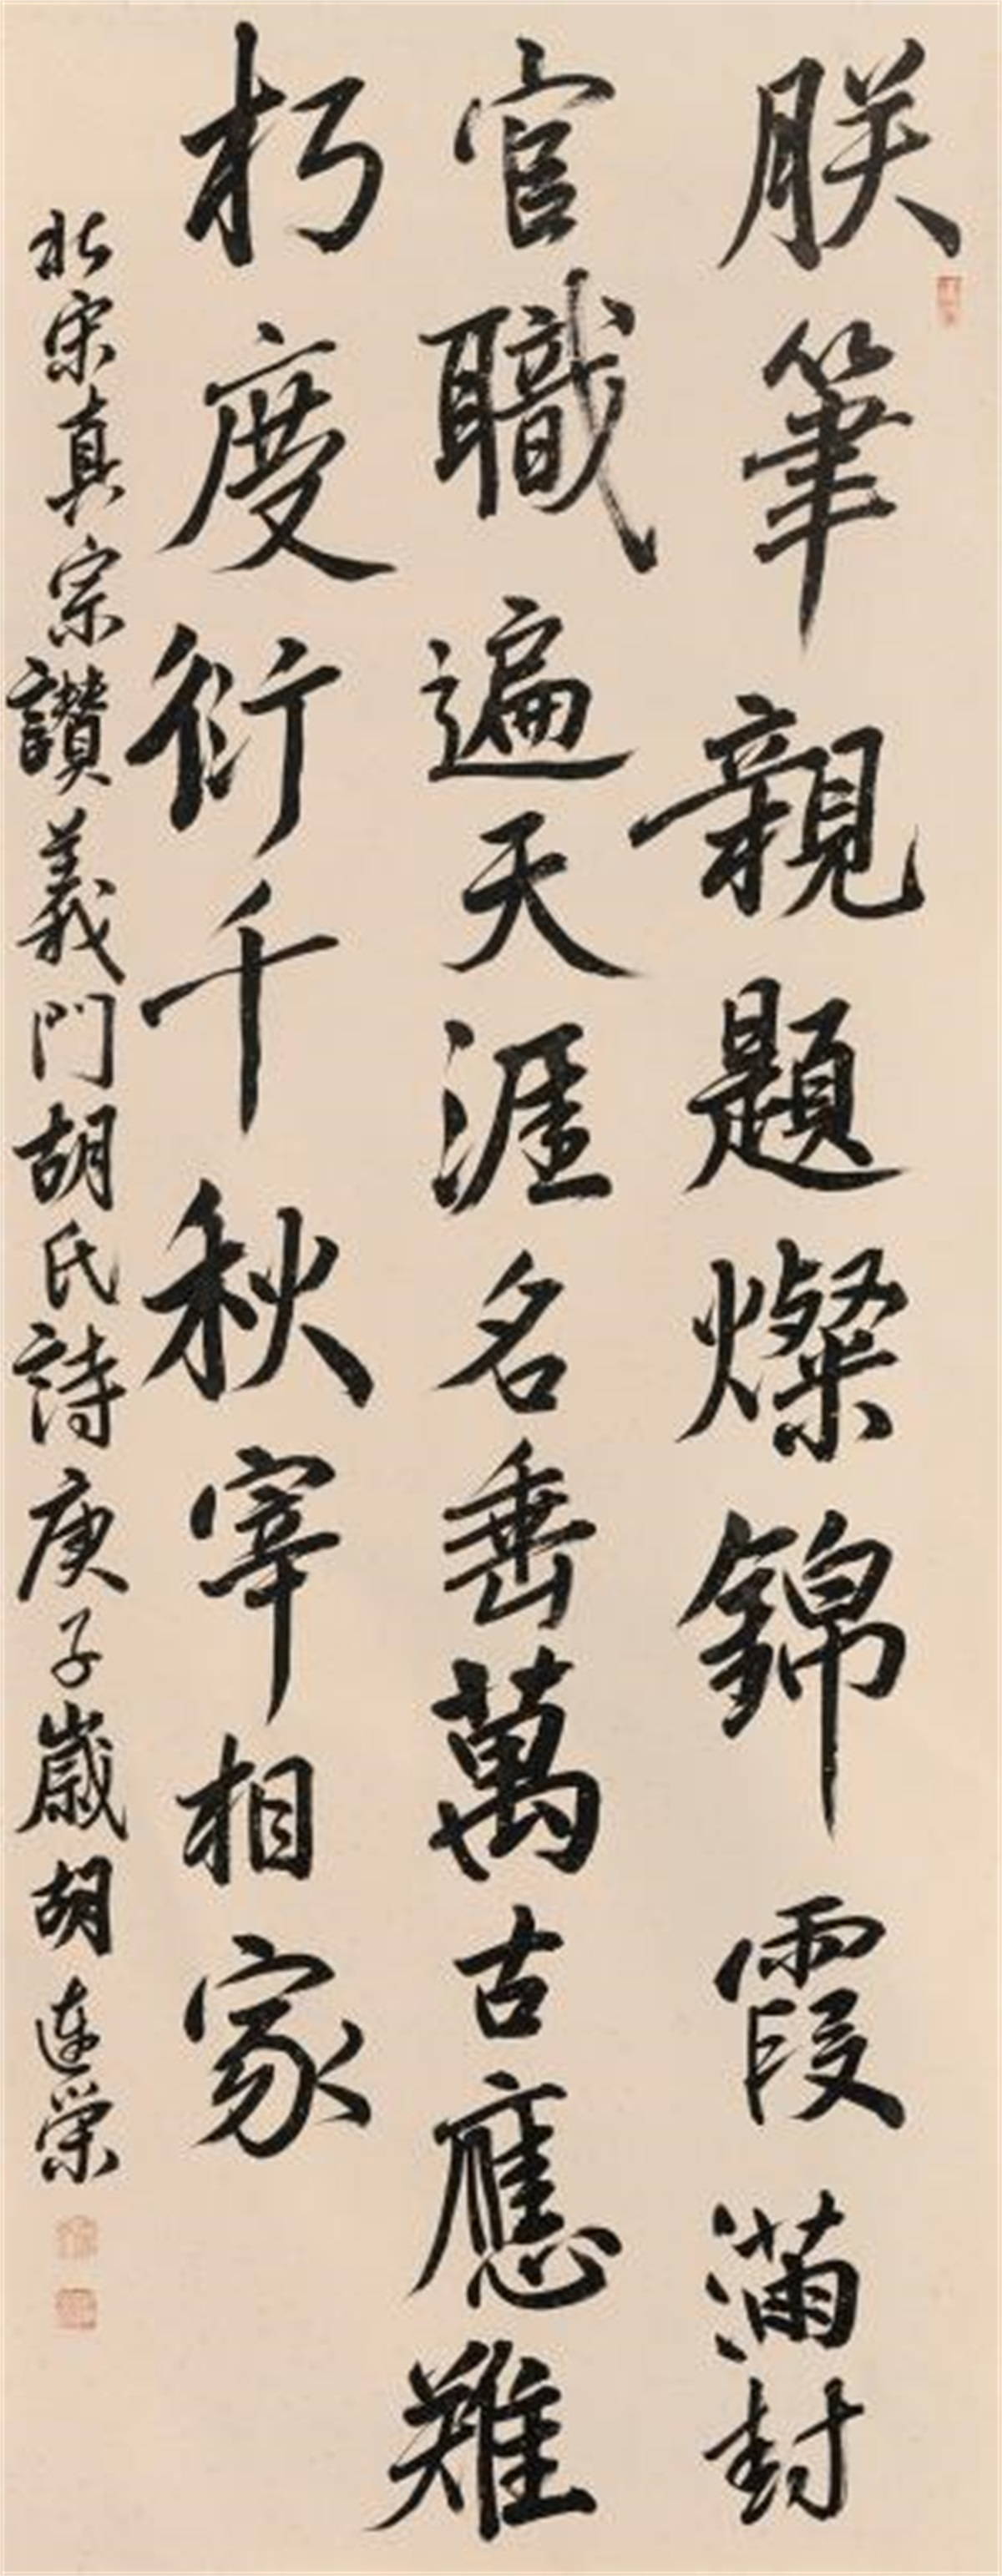 朕筆親題燦錦霞滿封
官職遍天涯名垂萬古應難
朽度衍千秋宰相家
北宋真宗讃義門胡氏詩庚子歲胡連榮